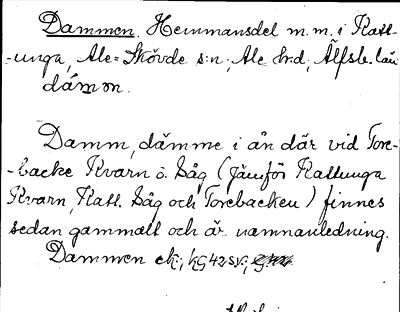 Dammen. Hemmansdel m.m. i Katt-
-unga, Ale=Skövde s:n, Ale h:d, Älfsb. län
dám̄ɔn.
Damm, dämme i ån där vid Tore-
-backe Kvarn o. Såg (Jämför Kattunga
Kvarn, Katt. Såg och Torebacken) finnes
sedan gammalt och är namnanledning.
Dammen ek., kG 42 sv.,